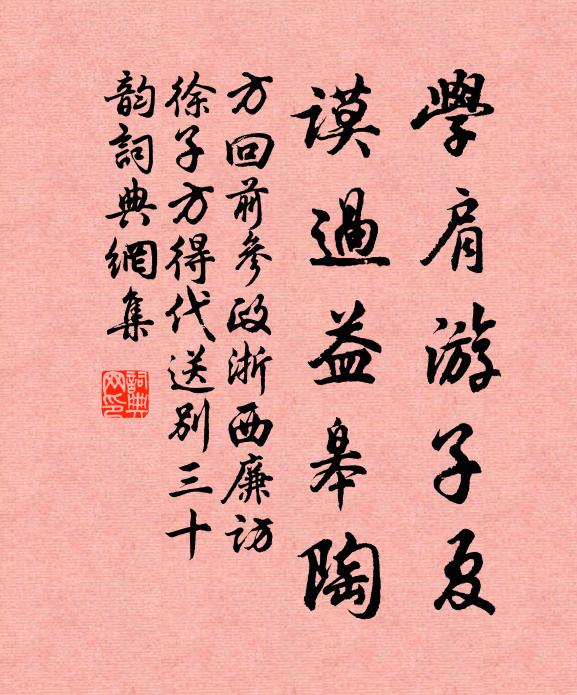 學肩游子夏
謨過益皋陶
方回前參政浙西廉訪
徐子方得代送別三十
韵詞典網集
詞典
网印